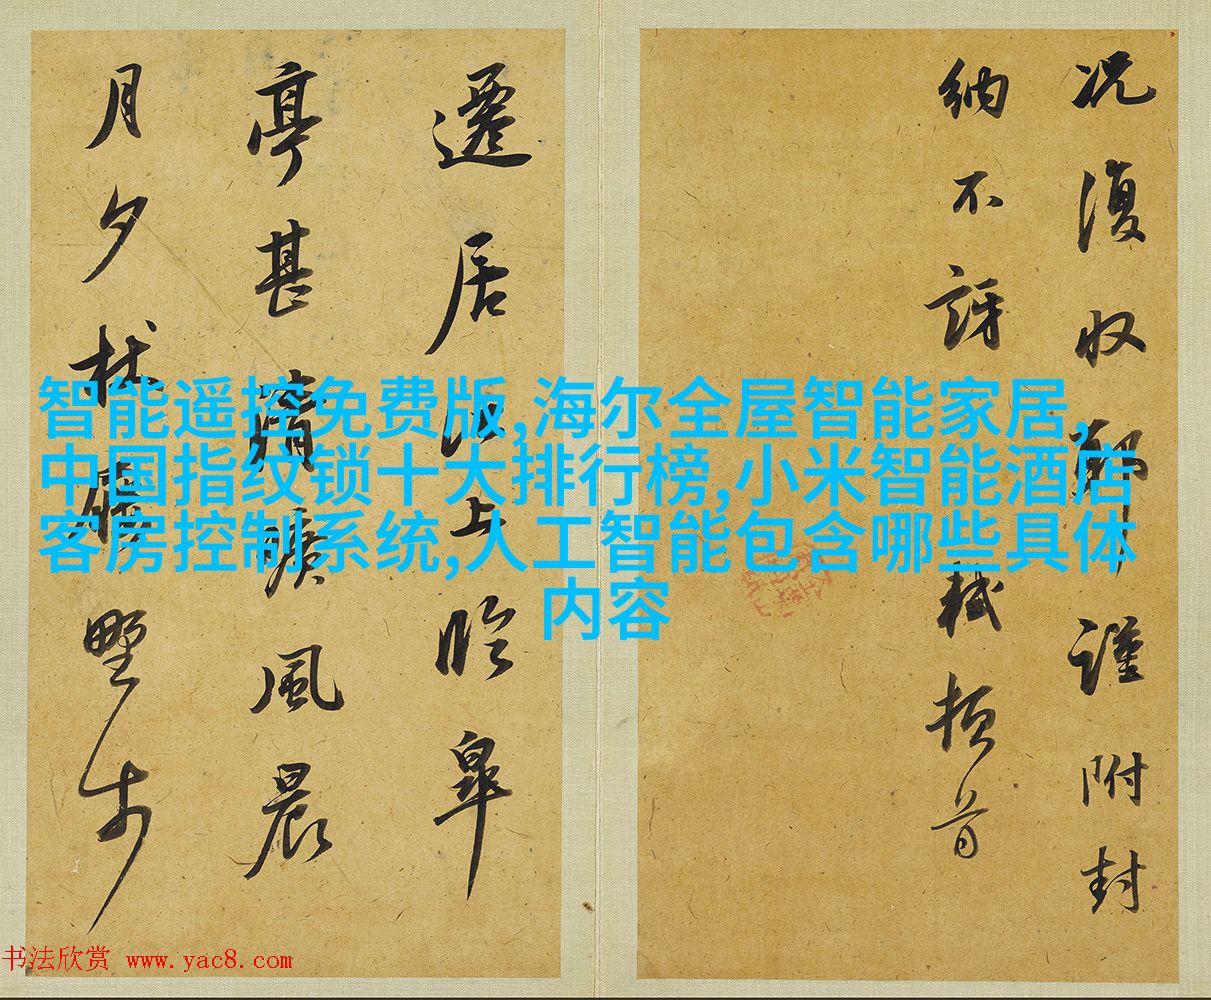 况復收謹附封
納不訝軾頓首
遷居江上臨皋
亭甚清曠風晨
月夕杖屨野步
智能遥控免费版,海尔全屋智能家居,
中国指纹锁十大排行榜,小米智能酒店
客房控制系统,人工智能包含哪些具体
内容
书法欣赏 www.yac8.com